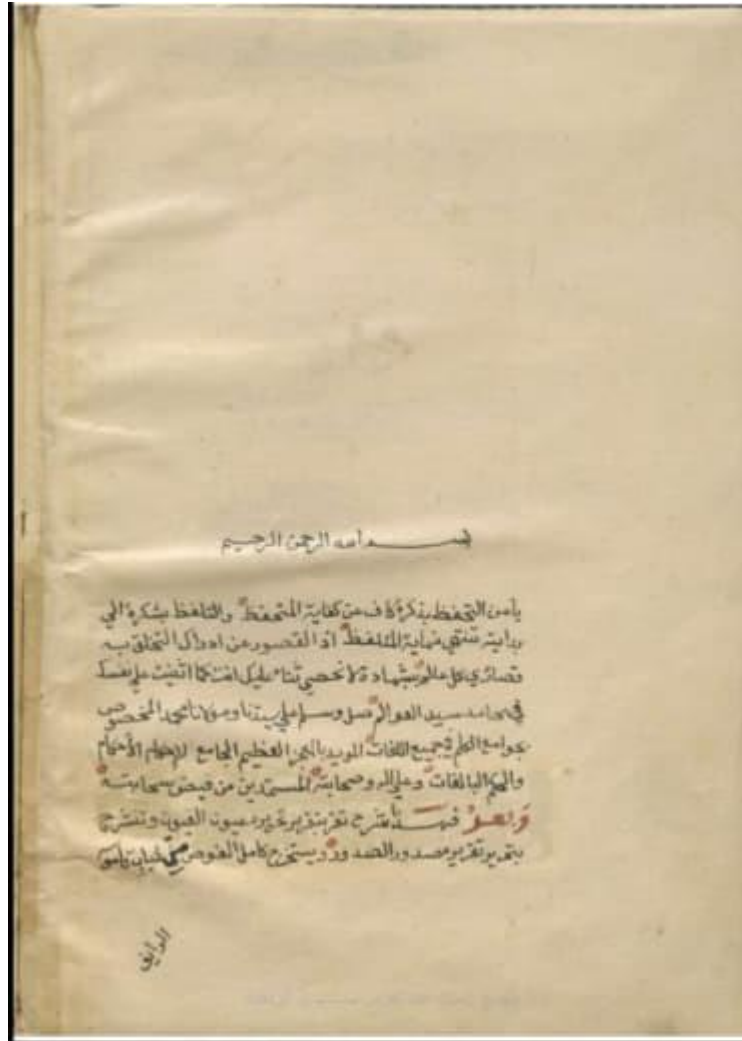 بسم الله الرحمن الرحيم
يا من التحفظ بذكره كاف عن كفاية المتحفظ والتلفظ بشكره الي
بداية تنتهي نهاية المتلفظ اذ القصور عن ادراك التخلق به
قصاري كل عالم بشهادة لا نحصي ثناء عليك انت كما اثنيت علي نفسك
في محامد سيد العوالم صل وسلم علي سيدنا ومولانا محمد المخصوص
بجوامع الكلم في جميع اللغات المويد بالعظيم الجامع الاحكام
والحكم البالغات وعلي اله وصحابته المستمدين من فيض سحابته
وبعد فهذا شرح تقر بتقرير تحريره عيون العيون وتنشرح
بتحرير تقريره صدور الصدور ويستخرج كامل الغوص من
الرايق